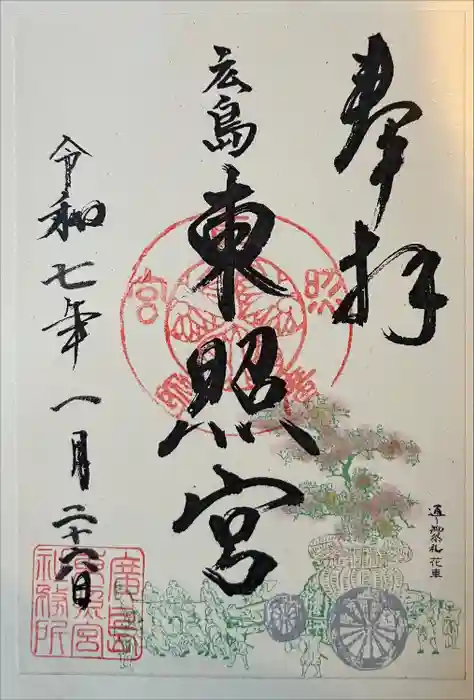 奉拝
通り御祭礼 花車
広島
東照宮
令和七年一月二十六日
廣島
東照宮
社務所